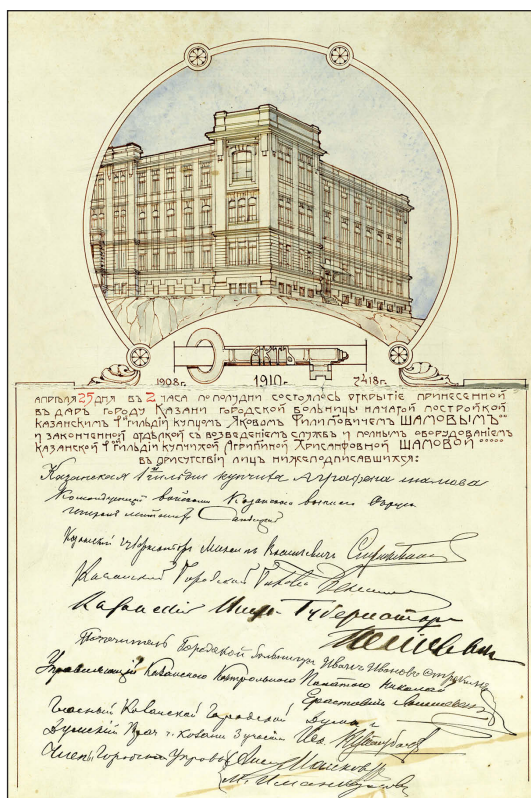 1908г. 1910г. 2418г.
АПРѢЛЯ 25 ДНЯ ВЪ 2 ЧАСА ПО ПОЛУДНИ СОСТОЯЛОСЬ ОТКРЫТІЕ ПРИНЕСЕННОЙ
ВЪ ДАРЪ ГОРОДУ КАЗАНИ ГОРОДСКОЙ БОЛЬНИЦЫ НАЧАТОЙ ПОСТРОЙКОЙ
КАЗАНСКИМЪ 1 ГИЛЬДІИ КУПЦОМЪ ЯКОВОМЪ ФИЛИПОВИЧЕМЪ ШАМОВЫМЪ
И ЗАКОНЧЕННОЙ ОТДѢЛКОЙ СЪ ВОЗВЕДЕНІЕМЪ СЛУЖБЪ И ПОЛНЫМЪ ОБОРУДОВАНІЕМЪ
КАЗАНСКОЙ 1 ГИЛЬДІИ КУПЧИХОЙ АГРИПИНОЙ ХРИСАНФОВНОЙ ШАМОВОЙ
ВЪ ПРИСУТСТВІИ ЛИЦЪ НИЖЕПОДПИСАВШИХСЯ:
Казанская 1й гильдіи купчиха Аграфена шамова
Командующій войсками Казанскаго военнаго Округа
генералъ лейтенантъ Сандецкій
Казанскій Губернаторъ Михаилъ Васильевичъ
Казанскій Городской Голова
Казанскій Вице-Губернаторъ
Попечитель Городской больницы Иванъ Ивановъ
Управляющій Казанскою Контрольною Палатою Николай
Гласный Казанской Городской Думы
Думскій Врач г. Казани 3 участк
Члены Городской Управы